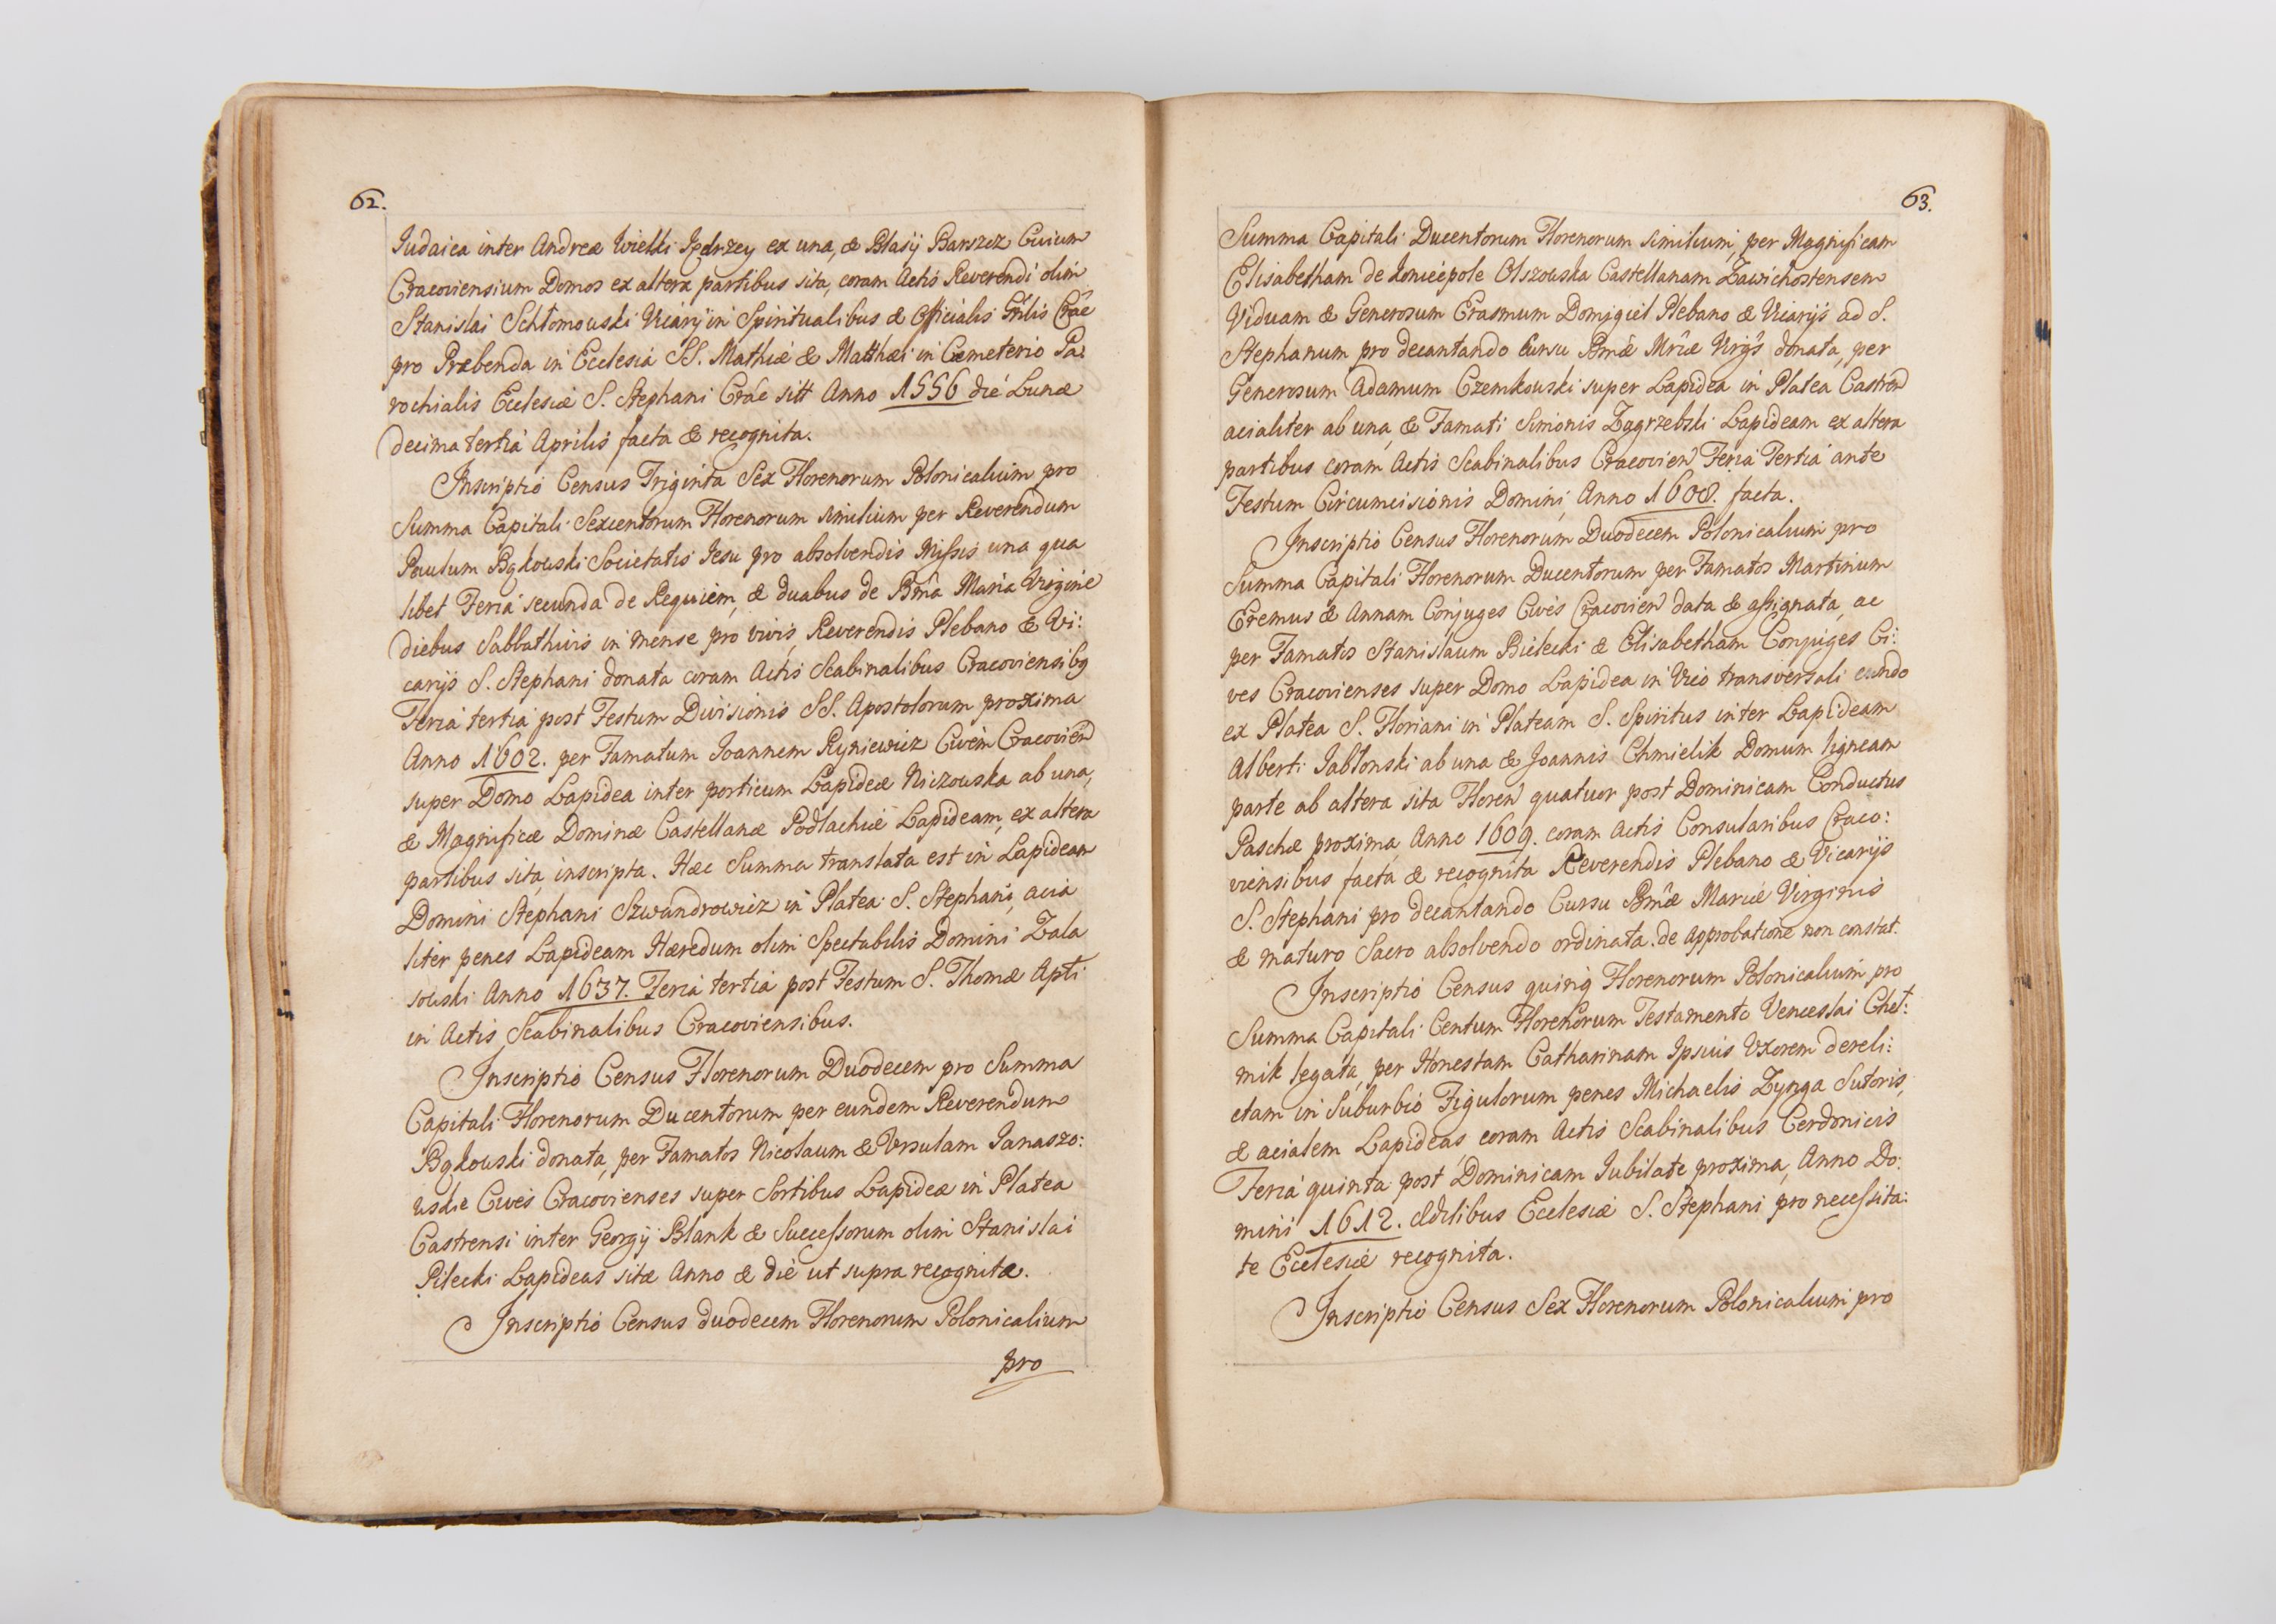 62.
Iudaica inter Andreæ Wielki Jędrzey ex una, & Blasij Barszcz Civium
Cracoviensium Domos ex altera partibus sita, coram Actis Reverendi olim
Stanislai Schłomowski Vicarij in Spiritualibus & Officialis Gn̄lis Crāc
pro Præbenda in Ecclesia SS. Mathiæ & Matthæi in Cæmeterio Pa:
rochialis Ecclesiæ S. Stephani Crāc sitt Anno 1556 die Lunæ
decima tertia Aprilis facta & recognita.
Inscriptio Census Triginta Sex Florenorum Polonicalium pro
Summa Capitali Sexcentorum Florenorum similium per Reverendum
Paulum Bąkowski Societatis Iesu pro absolvendis Missis una qua
libet Feria secunda de Requiem, & duabus de Bm̄a Maria Virgine
diebus Sabbathivis in mense pro vivis, Reverendis Plebano & Vi:
carijs S. Stephani donata coram Actis Scabinalibus Cracoviensibq
Feria tertia post Festum Divisionis SS. Apostolorum proxima
Anno 1602. per Famatum Ioannem Ryniewicz Civem Cracovien̄
super Domo Lapidea inter porticum Lapideæ Niczowska ab una,
& Magnificæ Dominæ Castellanæ Podlachiæ Lapideam, ex altera
partibus sita, inscripta. Hæc Summa translata est in Lapideam
Domini Stephani Szwandrowicz in Platea S. Stephani, acia
liter penes Lapideam Hæredum olim Spectabilis Domini Zala
sowski Anno 1637. Feria tertia post Festum S. Thomæ Apłi
in Actis Scabinalibus Cracoviensibus.
Inscriptio Census Florenorum Duodecem pro Summa
Capitali Florenorum Ducentorum per eundem Reverendum
Bąkowski donata, per Famatos Nicolaum & Vrsulam Ianaszo:
wskie Cives Cracovienses super Sortibus Lapideæ in Platea
Castrensi inter Georgij Blank & Successorum olim Stanislai
Pilecki Lapideas sitæ Anno & die ut supra recognita.
Inscriptio Census duodecem Florenorum Polonicalium
pro
63.
Summa Capitali Ducentorum Florenorum similium, per Magnificam
Elisabetham de Koniecpole Olszowska Castellanam Zawichostensem
Viduam & Generosum Erasmum Domigiel Plebano & Vicarijs ad S.
Stephanum pro decantando Cursu Bm̄æ Mr̄iæ Virgīs donata, per
Generosum Adamum Czemkowski super Lapidea in Platea Castren̄
acialiter ab una, & Famati Simonis Zagrzebski Lapideam ex altera
partibus coram Actis Scabinalibus Cracovien̄ Feria Tertia ante
Festum Circumcisionis Domini, Anno 1608. facta.
Inscriptio Census Florenorum Duodecem Polonicalium pro
Summa Capitali Florenorum Ducentorum per Famatos Martinum
Eremus & Annam Conjuges Cives Cracovien̄ data & assignata, ac
per Famatos Stanislaum Bielecki & Elisabetham Conjuges Ci:
ves Cracovienses super Domo Lapidea in Vico transversali eundo
ex Platea S. Floriani in Plateam S. Spiritus inter Lapideam
Alberti Iabłonski ab una & Joannis Chmielik Domum ligneam
parte ab altera sita Floren̄ quatuor post Dominicam Conductus
Paschæ proxima, Anno 1609. coram Actis Consularibus Craco:
viensibus facta & recognita Reverendis Plebano & Vicarijs
S. Stephani pro decantando Cursu Bm̄æ Mariæ Virginis
& maturo Sacro absolvendo ordinata. de Approbatione non constat.
Inscriptio Census quinq̨ Florenorum Polonicalium pro
Summa Capitali Centum Florenorum Testamento Venceslai Cheł:
mik legata, per Honestam Catharinam Ipsius Vxorem dereli:
ctam in Suburbio Figulorum penes Michaelis Zynga Sutoris,
& acialem Lapideas, coram Actis Scabinalibus Cerdonicis
Feria quinta post Dominicam Iubilate proxima, Anno Do:
mini 1612. Ædilibus Ecclesiæ S. Stephani pro necessita:
te Ecclesiæ recognita.
Inscriptio Census Sex Florenorum Polonicalium pro